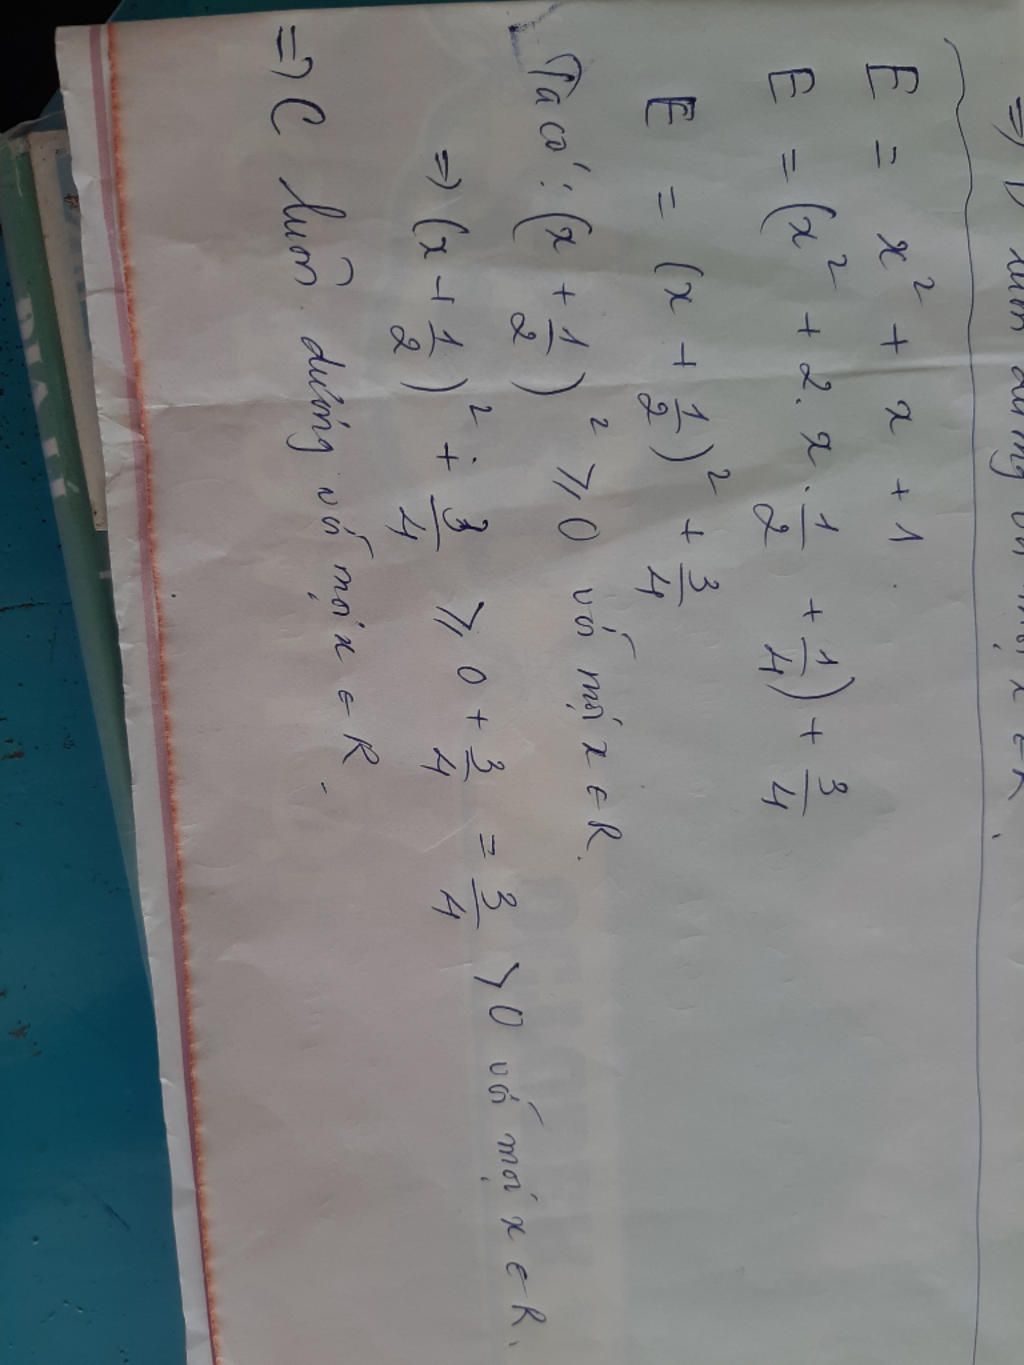 =) D luôn dương với mọi x ∈ R.
E = x² + x + 1.
E = (x² + 2. x . 1/2 + 1/4) + 3/4
E = (x + 1/2)² + 3/4
Ta có: (x + 1/2)² ⩾ 0 với mọi x ∈ R.
=) (x + 1/2)² + 3/4 ⩾ 0 + 3/4 = 3/4 > 0 với mọi x ∈ R.
=) C luôn dương với mọi x ∈ R.